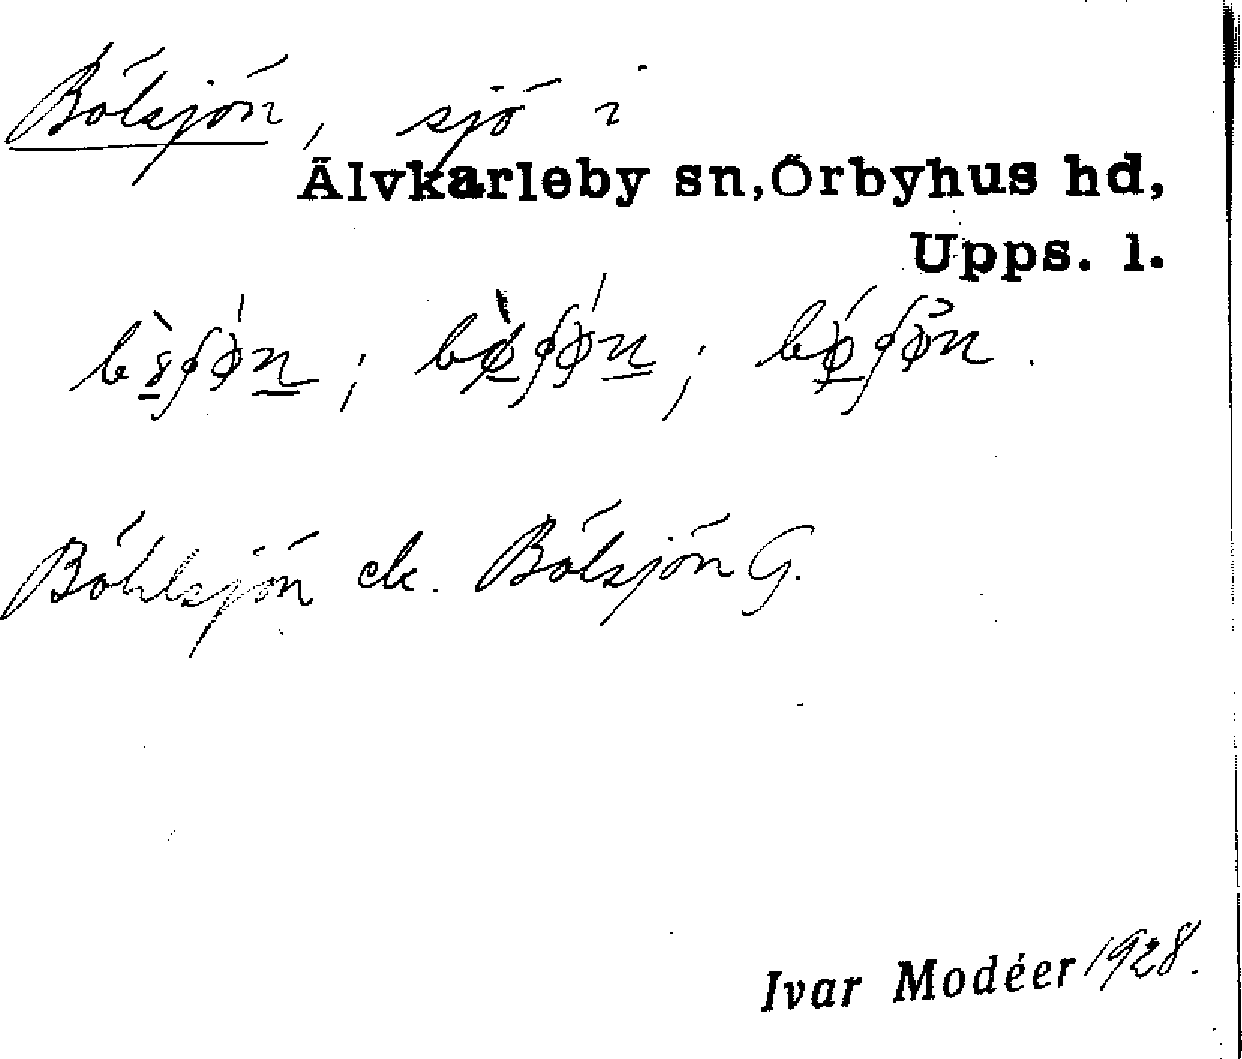 Bölsjön, sjö i
Älvkarleby sn, Örbyhus hd,
Upps. l.
Böhlsjön ek. Bölsjön G.
Ivar Modéer 1928.